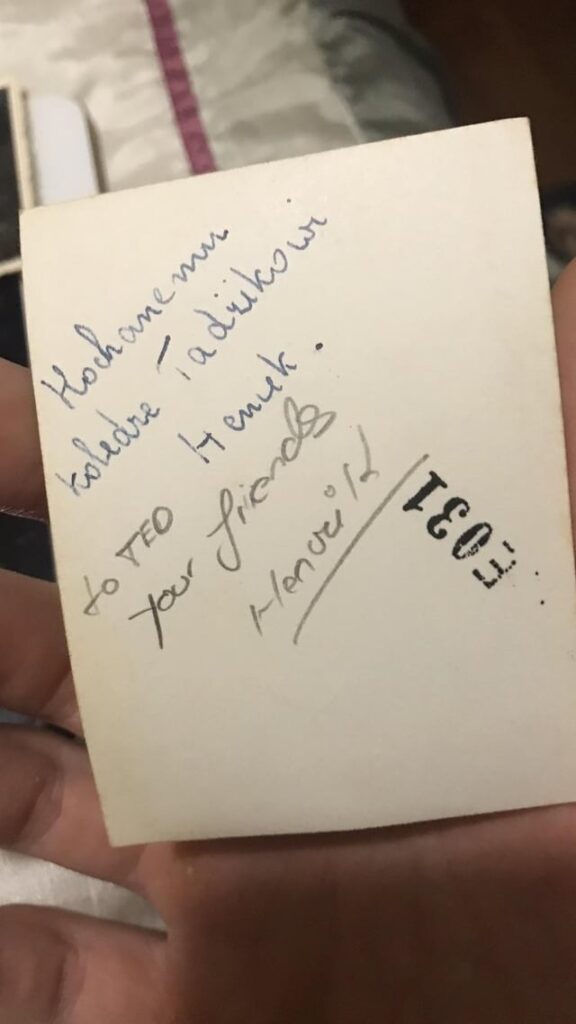 Kochanemu
koledze Tadzikowi
Heniek.
to TED
your friends
Henrik
E031